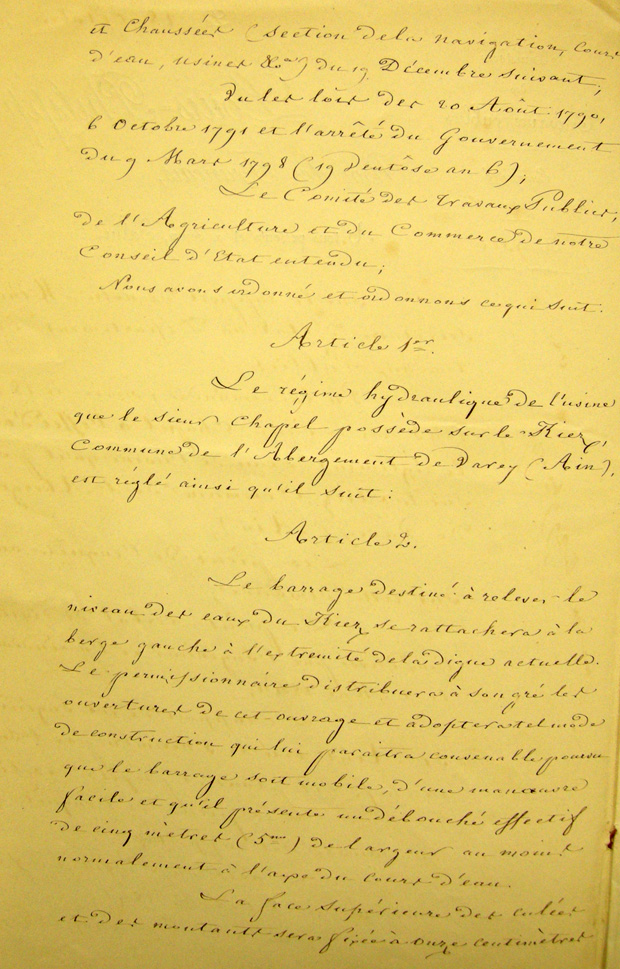 et Chaussées (section de la navigation, cours
d'eau, usines &ca) du 19 Décembre suivant;
Vu les lois des 20 Août 1790,
6 Octobre 1791 et l'arrêté du Gouvernement
du 9 Mars 1798 (19 Ventôse an 6);
Le Comité des Travaux Publics,
de l'Agriculture et du Commerce de notre
Conseil d'Etat entendu;
Nous avons ordonné et ordonnons ce qui suit.
Article 1er.
Le régime hydraulique de l'usine
que le sieur Chapel possède sur le Riez,
Commune de l'Abergement de Varey (Ain),
est réglé ainsi qu'il suit:
Article 2.
Le barrage destiné à relever le
niveau des eaux du Riez se rattachera à la
berge gauche à l'extremité de la digue actuelle.
Le permissionnaire distribuera à son gré les
ouvertures de cet ouvrage et adoptera tel mode
de construction qui lui paraitra convenable pourvu
que le barrage soit mobile, d'une manœuvre
facile et qu'il présente un débouché effectif
de cinq mètres (5m) de largeur au moins
normalement à l'axe du cours d'eau.
La face supérieure des culées
et des montants sera fixée à onze centimètres